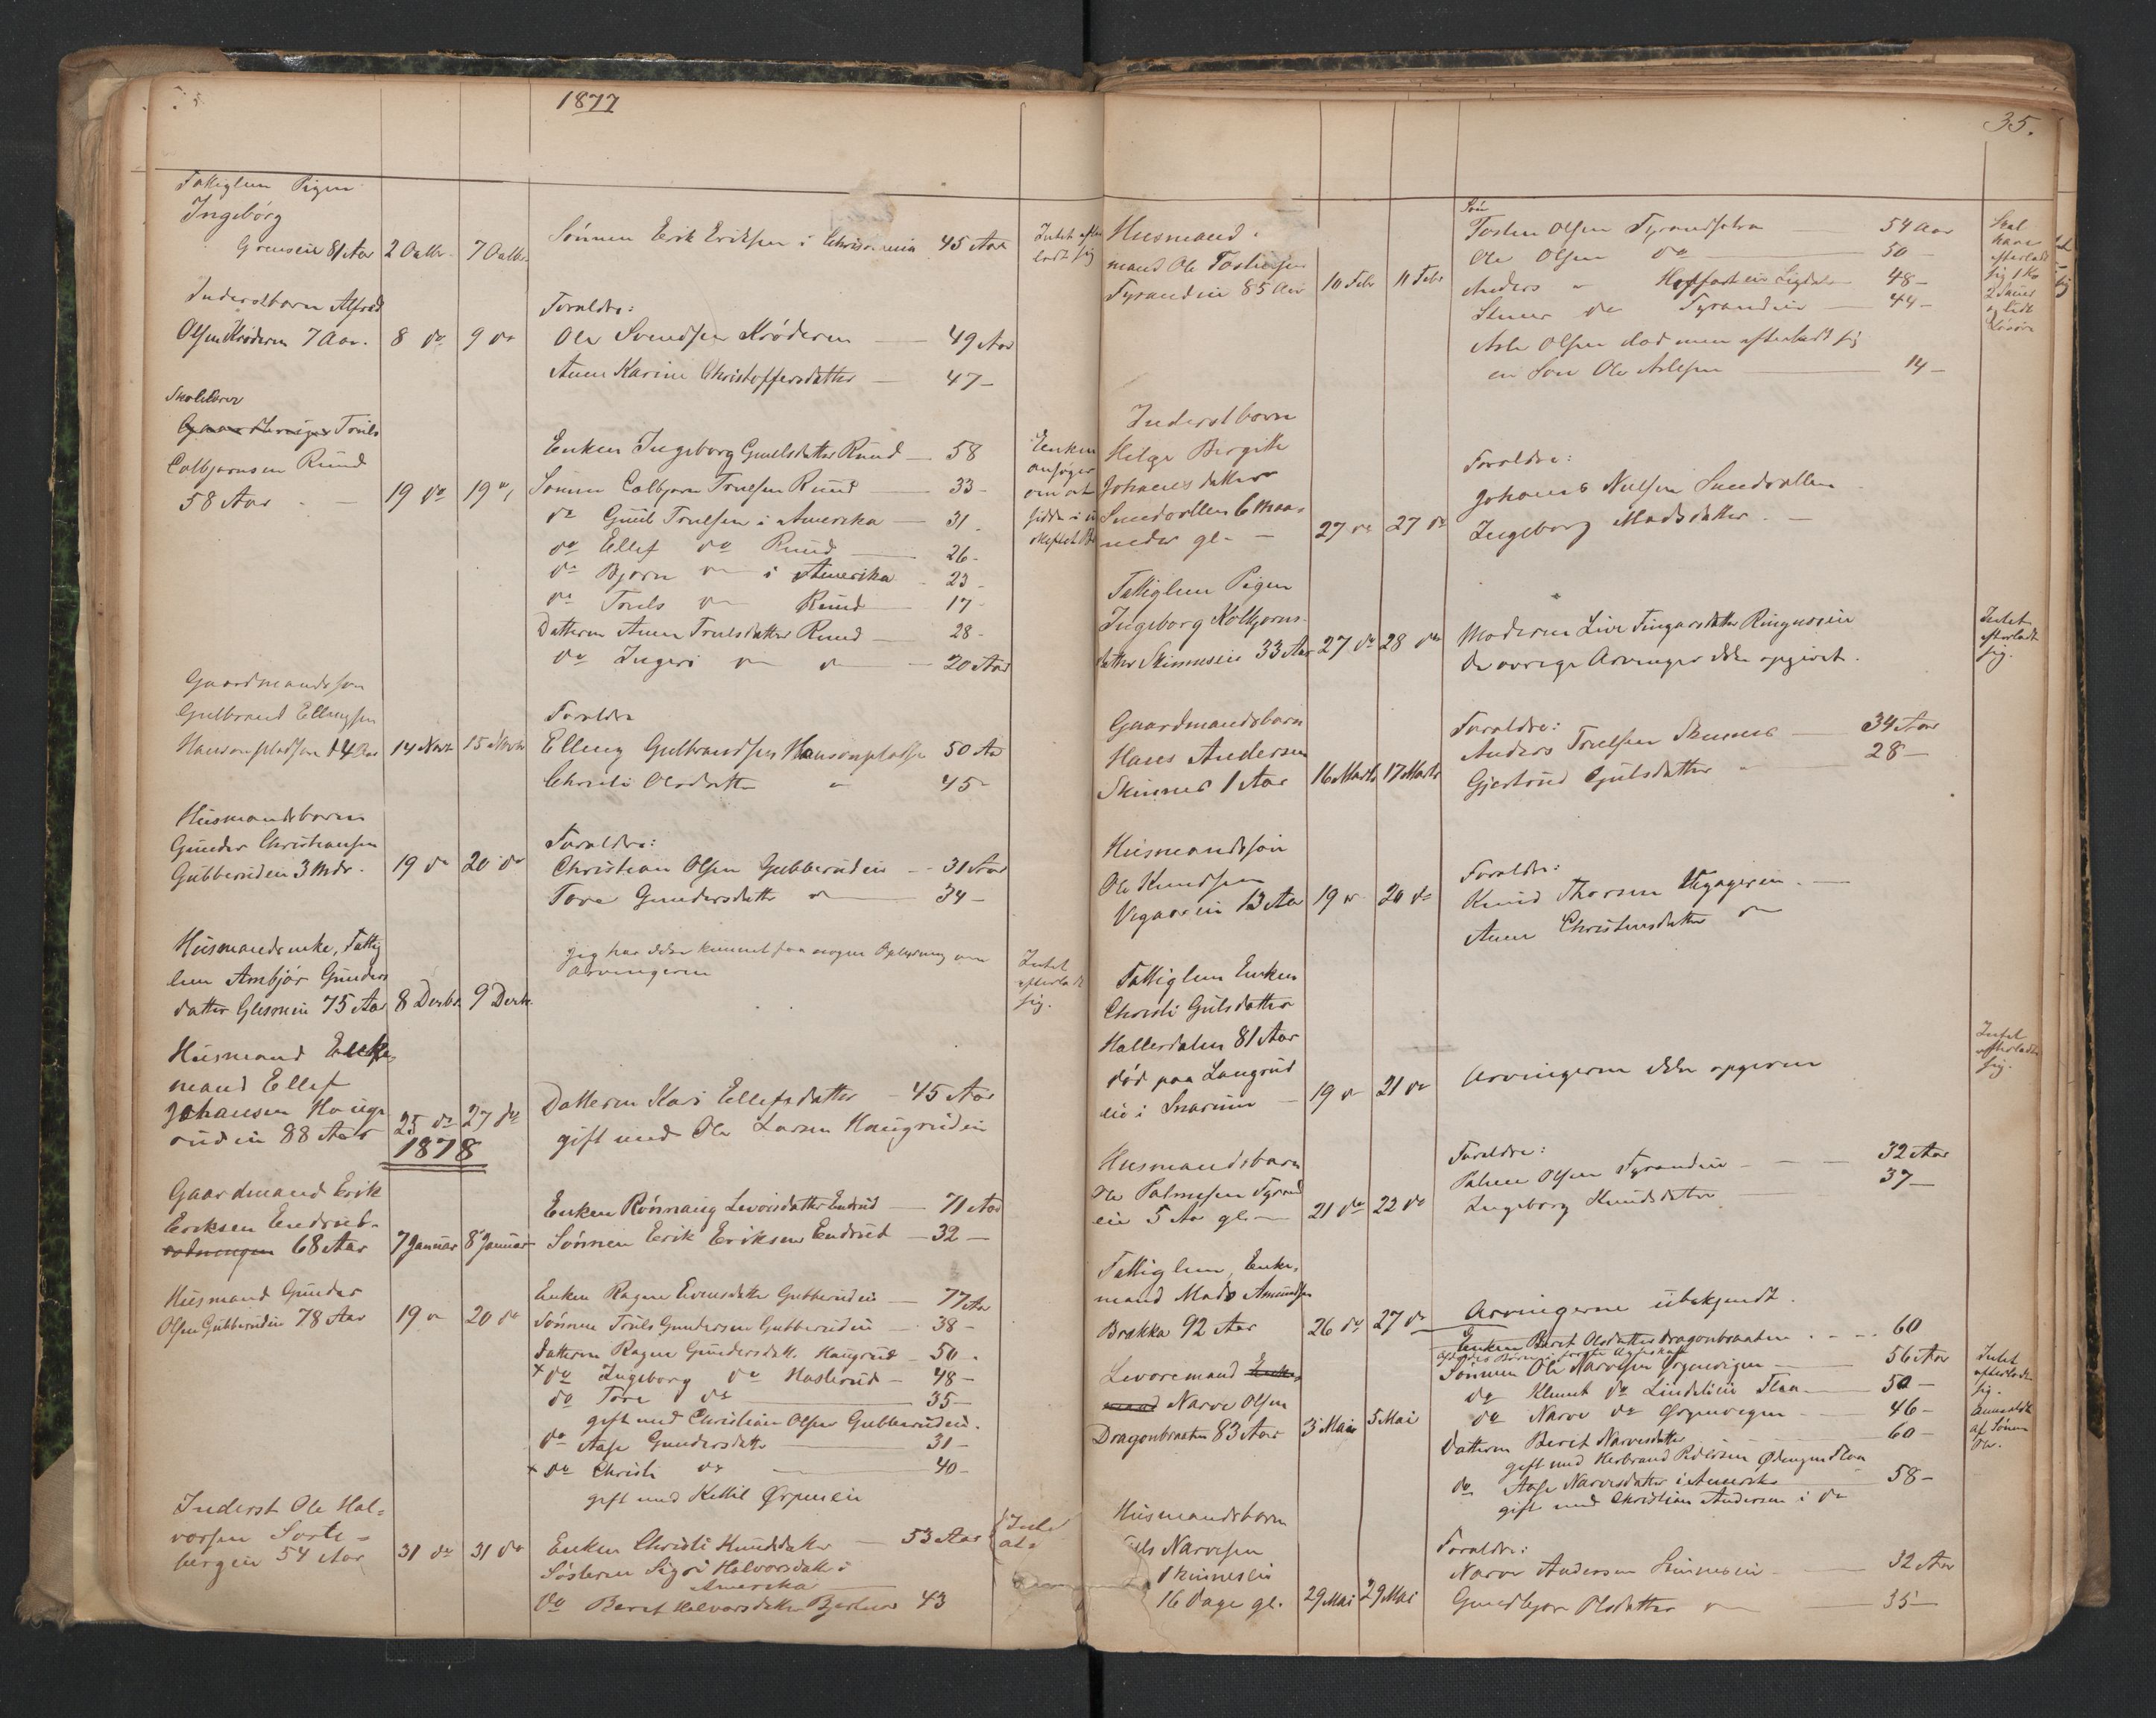 1877
Fattiglem Pigen
Ingebørg
Grønseie 81 Aar 2 Octbr. 7 Octbr. Sønnen Erik Eriksen i Christiania 45 Aar Intet efter
ladt sig
Inderstbarn Alfred
Olsen Krøderen 7 Aar. 8 do 9 do
Foreldre:
Ole Svendsen Krøderen — 49 Aar
Anne Karine Christoffersdatter — 47 —
Skolelærer
Truls
Colbjørnsen Ruud
58 Aar — 19 do 19 do
Enken Ingeborg Gunelsdatter Ruud — 58
Sønnen Colbjørn Truelsen Ruud — 33 —
do Guul Truelsen i Amerika — 31 —
do Ellef do Ruud — 26 —
do Bjørn do i Amerika — 23 —
do Truls do Ruud — 17 —
Datteren Anne Trulsdatter Ruud — 28 —
do Ingeri do do — 20 Aar
Enken
ansøger
om at
sidde i u
skiftet Bo
Gaardmandssøn
Gulbrand Ellingsen
Hansenpladsen 14 Aar 14 Novbr 15 Novbr
Foreldre
Elling Gulbrandsen Hansenpladsen 50 Aar
Christi Olsdatter " 45 —
Husmandsbarn
Gunder Christiansen
Gubberudeie 3 Mdr. 19 do 20 do
Foreldre:
Christian Olsen Gubberudeie — 31 Aar
Tore Gundersdatter do — 34 —
Husmandsenke, Fattig
lem Ambjør Gunders
datter Glesneeie 75 Aar 8 Decbr. 9 Decbr.
Jeg har ikke kunnet faa nogen Oplysning om
Arvingerne
Intet
efterladt
sig.
Husmand Enke
mand Ellef
Johansen Hauge
rudeie 88 Aar 25 do 27 do
Datteren Kari Ellefsdatter — 45 Aar
gift med Ole Larsen Haugrudeie
1878
Gaardmand Erik
Eriksen Endrud
68 Aar 7 Januar 8 Januar
Enken Rønnaug Levorsdatter Endrud — 71 Aar
Sønnen Erik Eriksen Endrud — 32 —
Husmand Gunder
Olsen Gubberudeie 78 Aar 19 do 20 do
Enken Ragne Evensdatter Gubberudeie — 77 Aar
Sønnen Truls Gundersen Gubberudeie — 38 —
Datteren Ragne Gundersdatt. Haugrud — 50 —
+ do Ingeborg do Haslerud — 48 —
do Tore do — 35 —
gift med Christian Olsen Gubberudeie.
do Aase Gundersdatter — 31 —
+ do Christi do — 40 —
gift med Kittil Ørpeneie
Inderst Ole Hal-
vorsen Sorte-
bergeie 54 Aar 31 do 31 do
Enken Christi Knudsdatter — 53 Aar
Søsteren Sigri Halvorsdatt i
Amerika
do Berit Halvorsdatter 43
35.
Husmand
mand Ole Tostensen
Tyrandeie 85 Aar 10 Febr 11 Febr
Søn
Tosten Olsen 54 Aar
Ole Olsen do — 50 —
Anders " i Sigdal — 48 —
Stener do Tyrandeie — 44 —
Asle Olsen død men efterladt sig
en Søn Ole Aslesen — 14 —
Skal
have
efterladt
sig 1 Ko
2 Sauer
og lidt
Løsøre
Inderstbarn
Helge Birgitte
Johannesdatter
Sundvollen 6 Maa-
neder gl. — 27 do 27 do
Foreldre:
Johannes Nielsen Sundvollen
Ingeborg Madsdatter —
Fattiglem Pigen
Ingeborg Kolbjørns-
datter Skinneseie 33 Aar 27 do 28 do
Moderen Live Fingarsdatter Ringneseie
De øvrige Arvinger ikke opgivet.
Intet
efterladt
sig.
Gaardmandsbarn
Hans Andersen
Skinnes 1 Aar 16 Marts 17 Marts
Foreldre:
Anders Truelsen Skinnes — 34 Aar
Gjertrud Gulsdatter " — 28 —
Husmandssøn
Ole Knudsen
13 Aar 19 do 20 do
Foreldre:
Knud Thorsen
Anne Christensdatter do
Fattiglem Enken
Christi Gulsdatter
Hallerdalen 81 Aar
død paa Langrud
eie i Snarum — 19 do 21 do
Arvingerne ikke opgivne
Intet
efterladt
sig.
Husmandsbarn
Ole Palmesen Tyrand
eie 5 Aar gl. — 21 do 22 do
Foreldre:
Palme Olsen Tyrandeie — 32 Aar
Ingeborg Knudsdatter — 37 —
Fattiglem, Enke-
mand Mads Amundsen
Brekka 92 Aar 26 do 27 do
Arvingerne ubekjendt.
Levoremand Enke-
mand Narve Olsen
Dragonbraaten 83 Aar 3 Mai 5 Mai
Enken Berit Olsdatter Dragonbraaten — 60
Afdødes Børn i første Ægteskab
Sønnen Ole Narvesen Ørgenvigen — 56 Aar
do Klemet do Lindelien Flaa — 50 —
do Narve do Ørgenvigen — 46 —
Datteren Berit Narvesdatter — 60 —
gift med Herbrand Flaa
do Aase Narvesdatter i Amerika — 58 —
gift med Christian Andersen i do
Intet
efterladt
sig.
Anmeldt
af Sønnen
Ole.
Husmandsbarn
Narvesen
Skinneseie
16 Dage gl. 29 Mai 29 Mai
Foreldre:
Narve Andersen Skinneseie — 32 Aar
Gundbjør Olsdatter do — 35 —